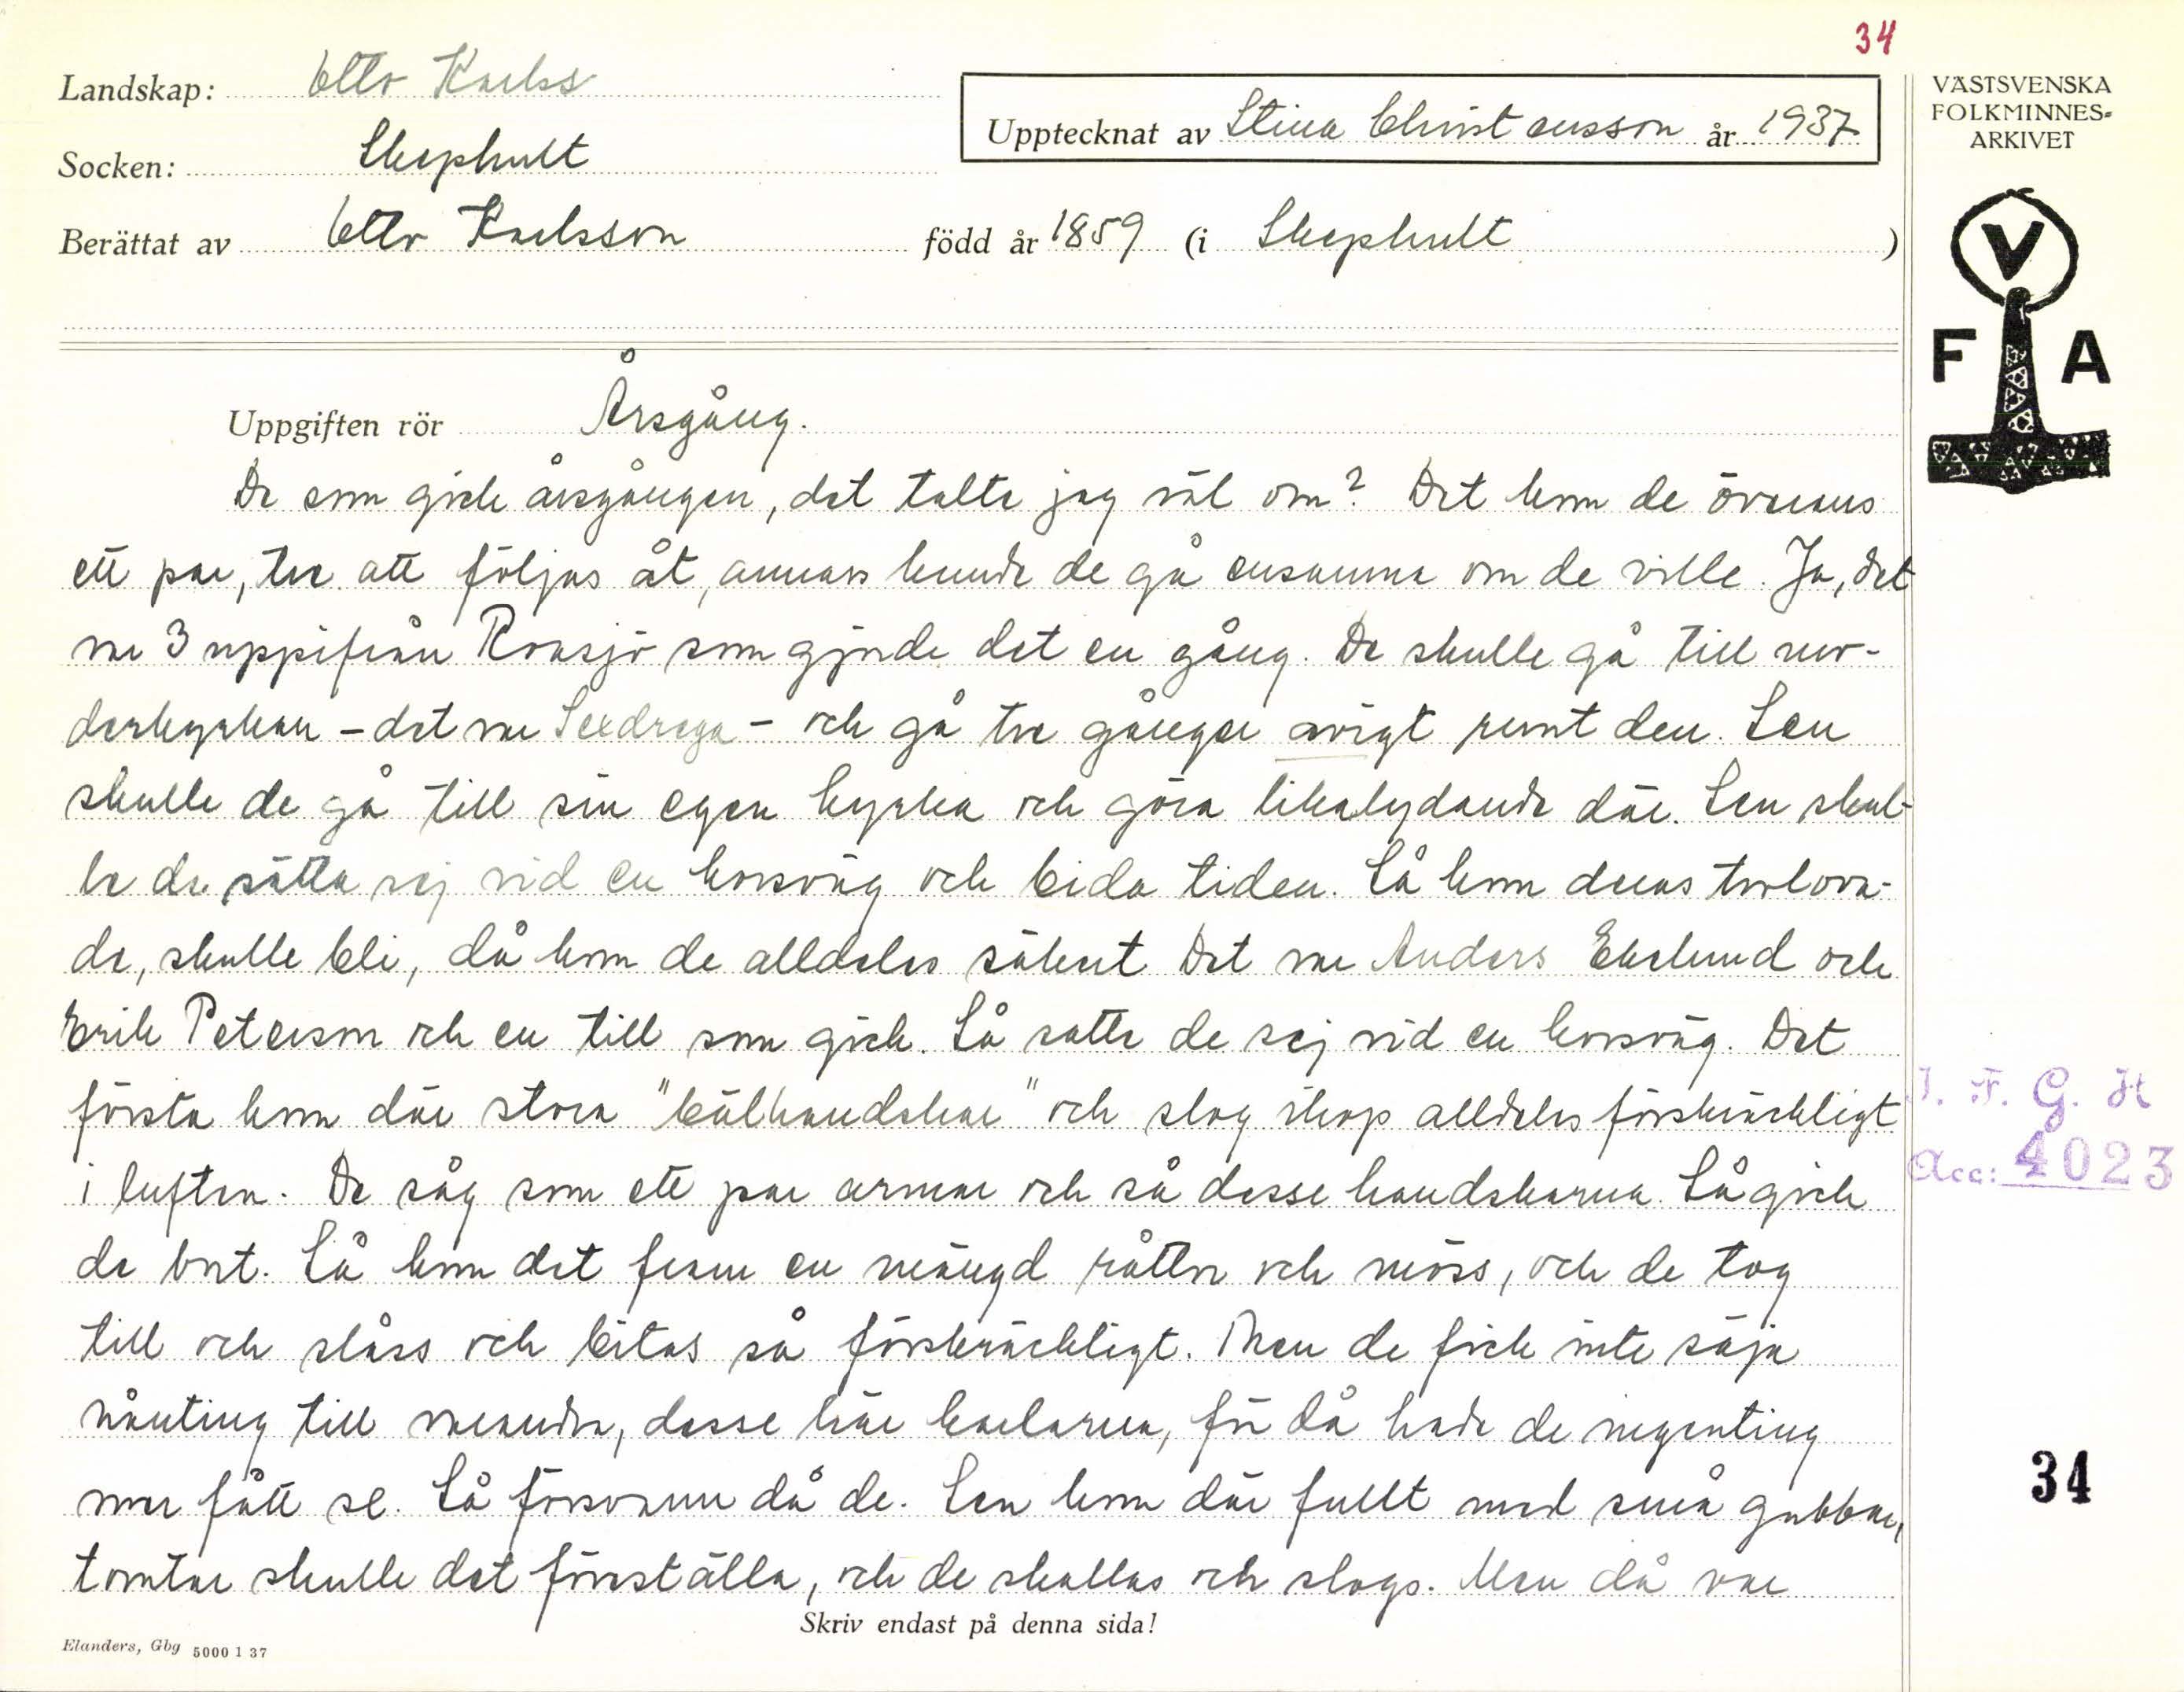 34
Landskap: Otto Karlss
Socken: Skephult
Upptecknat av Stina Christensson år 1937
Berättat av Otto Karlsson född år 1859 (i Skephult)
VÄSTSVENSKA
FOLKMINNES-
ARKIVET
V
F A
Uppgiften rör Årsgång.
De som gick årsgången, det talte jag väl om? Det kom de överens
ett par, tre att följas åt, annars kunde de gå ensamma om de ville. Ja, det
va 3 uppifrån Ronsjö som gjorde det en gång. De skulle gå till mo-
derkyrkan - det va Sexdrega - och gå tre gånger avigt runt den. Sen
skulle de gå till sin egen kyrka och göra likalydande där. Sen skul-
le de sätta sej vid en korsväg och bida tiden. Så kom deras trolova-
de, skulle bli, då kom de alldeles säkert Det va Anders Ekelund och
Erik Peterson och en till som gick. Så satte de sej vid en korsväg. Det
första kom där stora "bälhandskar" och slog ihop alldeles förskräckligt
i luften. De såg som ett par armar och så desse handskarna. Så gick
de bort. Så kom det fram en mängd råttor och möss, och de tog
till och slåss och bitas så förskräckligt. Men de fick inte säja
nånting till varandra, desse här karlarna, för då hade de ingenting
mer fått se. Så försvann då de. Sen kom där fullt med små gubbar,
tomtar skulle det föreställa, och de skallas och slogs. Men då var
Skriv endast på denna sida!
Elanders, Gbg 5000 1 37
I. F. G. H
Acc: 4023
34